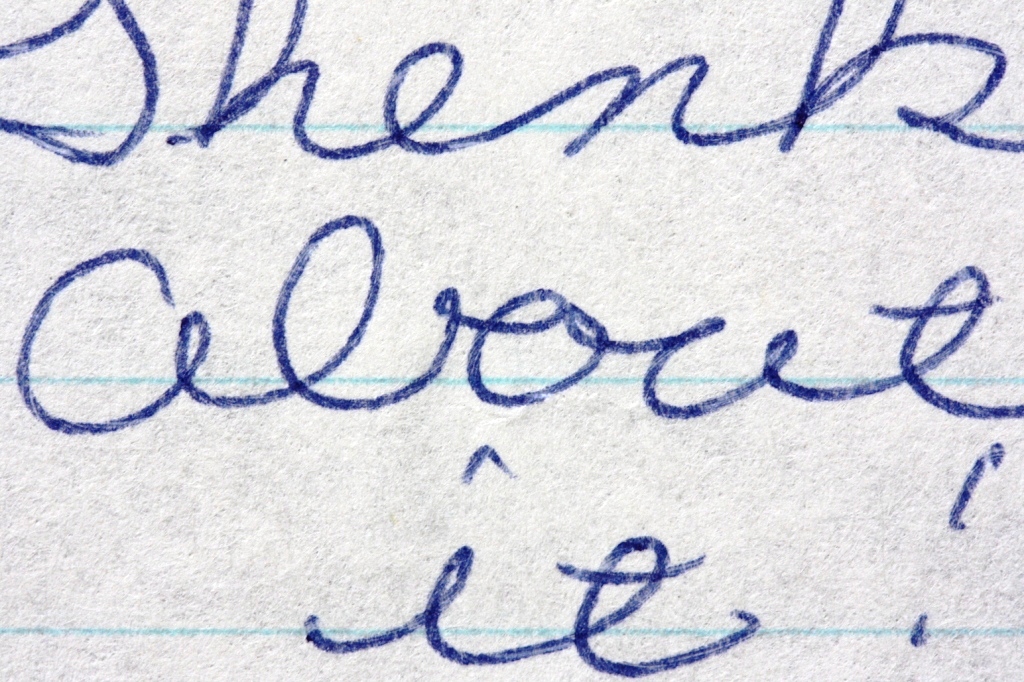 Thenk
about
it!